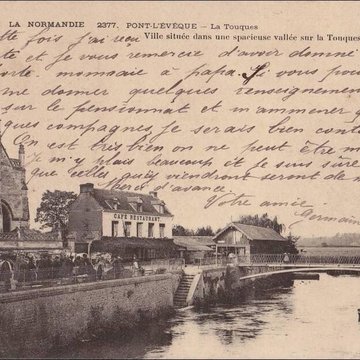 LA NORMANDIE 2377. PONT-L'ÉVÊQUE — La Touques
Ville située dans une spacieuse vallée sur la Touques
te fois j'ai reçu
te et je vous remercie d'avoir donné
monnaie à papa. Si vous pou
me donner quelques renseignemen
sur le pensionnat et m'ammener q
ques compagnes je serais bien conte
On est très bien on ne peut être m
Je m'y plais beaucoup et je suis sûre
que celles qui viendront seront de
Merci d'avance
Votre amie
Germain
CAFÉ RESTAURANT